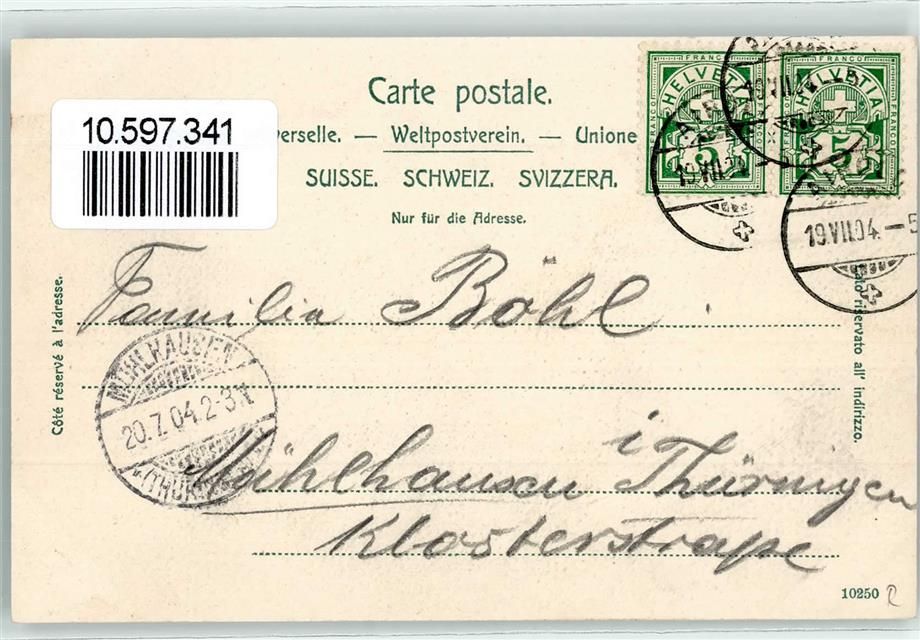 Carte postale.
10.597.341
verselle. — Weltpostverein. — Unione
SUISSE. SCHWEIZ. SVIZZERA.
Nur für die Adresse.
FRANCO
HELVETIA
5
FRANCO
HELVETIA
5
19.VII.04
19.VII.04.-5
Côté réservé à l'adresse.
lato riservato all' indirizzo.
Familia Böhl.
MÜHLHAUSEN
20.7.04.2-3N
(THÜR
Mühlhausen i Thüringen
Klosterstraße
10250